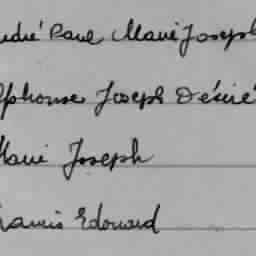 André Paul Marie Joseph
Alphonse Joseph Désiré
Marie Joseph
Francis Edouard